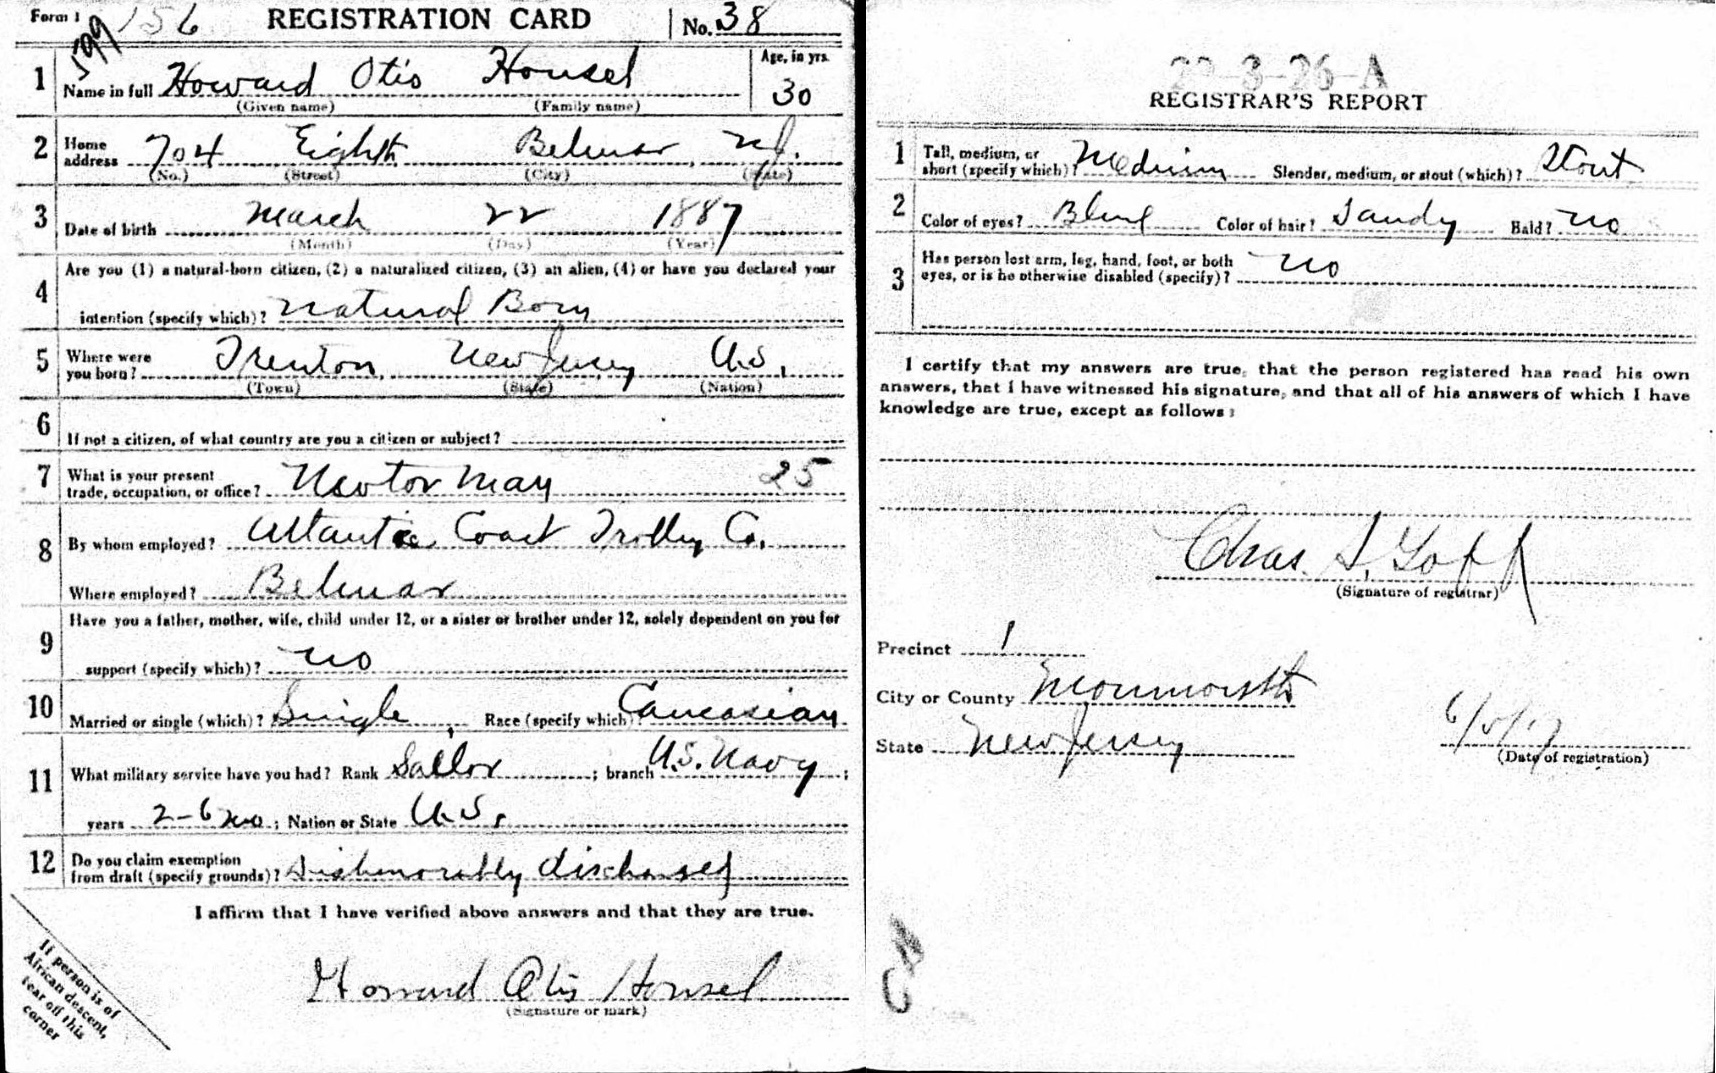 Form 1 599 156 REGISTRATION CARD No. 38
1 Name in full Howard Otis Housel Age, in yrs. 30
(Given name) (Family name)
2 Home address 704 Eighth Belmar, N.J.
(No.) (Street) (City) (State)
3 Date of birth March 22 1887
(Month) (Day) (Year)
Are you (1) a natural-born citizen, (2) a naturalized citizen, (3) an alien, (4) or have you declared your
4 intention (specify which)? Natural Born
5 Where were you born? Trenton, New Jersey U.S.
(Town) (State) (Nation)
6 If not a citizen, of what country are you a citizen or subject?
7 What is your present trade, occupation, or office? Motor Man 25
8 By whom employed? Atlantic Coast Trolley Co.
Where employed? Belmar
Have you a father, mother, wife, child under 12, or a sister or brother under 12, solely dependent on you for
9 support (specify which)? No
10 Married or single (which)? Single, Race (specify which) Caucasian
11 What military service have you had? Rank Sailor ; branch U.S. Navy ;
years 2-6 mo ; Nation or State U.S.
12 Do you claim exemption from draft (specify grounds)? Dishonorably discharged
I affirm that I have verified above answers and that they are true.
Howard Otis Housel
(Signature or mark)
If person is of
African descent,
tear off this
corner
3-26-A
REGISTRAR'S REPORT
1 Tall, medium, or short (specify which)? Medium Slender, medium, or stout (which)? Stout
2 Color of eyes? Blue Color of hair? Sandy Bald? No
3 Has person lost arm, leg, hand, foot, or both
eyes, or is he otherwise disabled (specify)? No
I certify that my answers are true, that the person registered has read his own
answers, that I have witnessed his signature, and that all of his answers of which I have
knowledge are true, except as follows:
Chas. Goff
(Signature of registrar)
Precinct 1
City or County Monmouth
State New Jersey 6/5/17
(Date of registration)